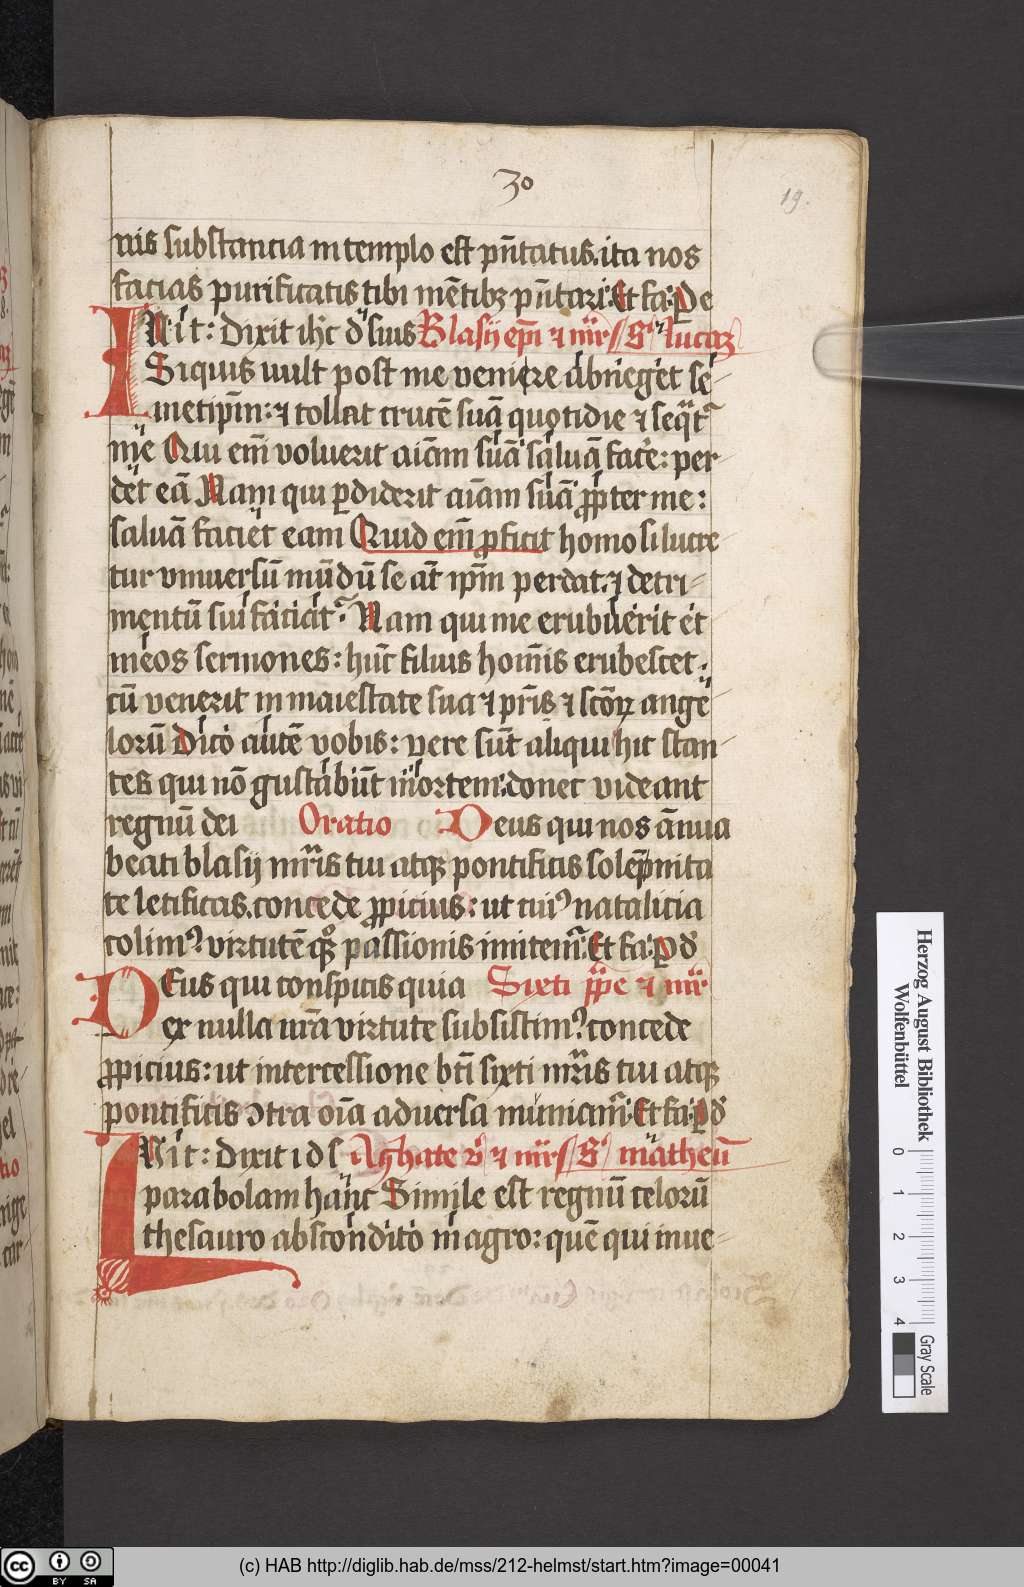 30
19.
nis substancia in templo est pñtatus. ita nos
facias purificatis tibi mētibꝫ pñtari. Et fa. De
IN it: Dixit ihc d suis Blasii epi ⁊ mr S lucaꝫ
Siquis vult post me venire abneget se-
metipm: ⁊ tollat crucē suā quotidie ⁊ seqt
me Qui em voluerit aiam suā saluā face: per-
det eā Nam qui ꝑdiderit aiam suā ꝓpter me:
saluā faciet eam Quid em ꝓficit homo si lucre-
tur vniuersū mūdū se at ipm perdat. ⁊ detri-
mentū sui faciat. Nam qui me erubuerit et
meos sermones: hūc filius homis erubescet.
cū venerit in maiestate sua ⁊ pris ⁊ scōꝝ ange-
lorū Dico autē vobis: vere sūt aliqui hic stan-
tes qui nō gustabūt mortem. donec videant
regnū dei Oratio Deus qui nos ānua
beati blasij mris tui atqꝫ pontificis solēpnita
te letificas. concede ꝓpicius: ut cuiꝰ natalicia
colimꝰ. virtutē qꝫ passionis imitem. Et fa. ꝑ d
DEus qui conspicis quia Sixti ppe ⁊ mr
ex nulla nra virtute subsistimꝰ. concede
ꝓpicius: ut intercessione bti sixti mris tui atqꝫ
pontificis ↄtra oia aduersa muniam. Et fa. ꝑ d
IN it: Dixit i d s Aghate v ⁊ mr S matheū
parabolam hanc Simile est regnū celorū
thesauro abscondito in agro: quē qui inue-
Herzog August Bibliothek
Wolfenbüttel
0 1 2 3 4
Gray Scale
cc BY SA
(c) HAB http://diglib.hab.de/mss/212-helmst/start.htm?image=00041